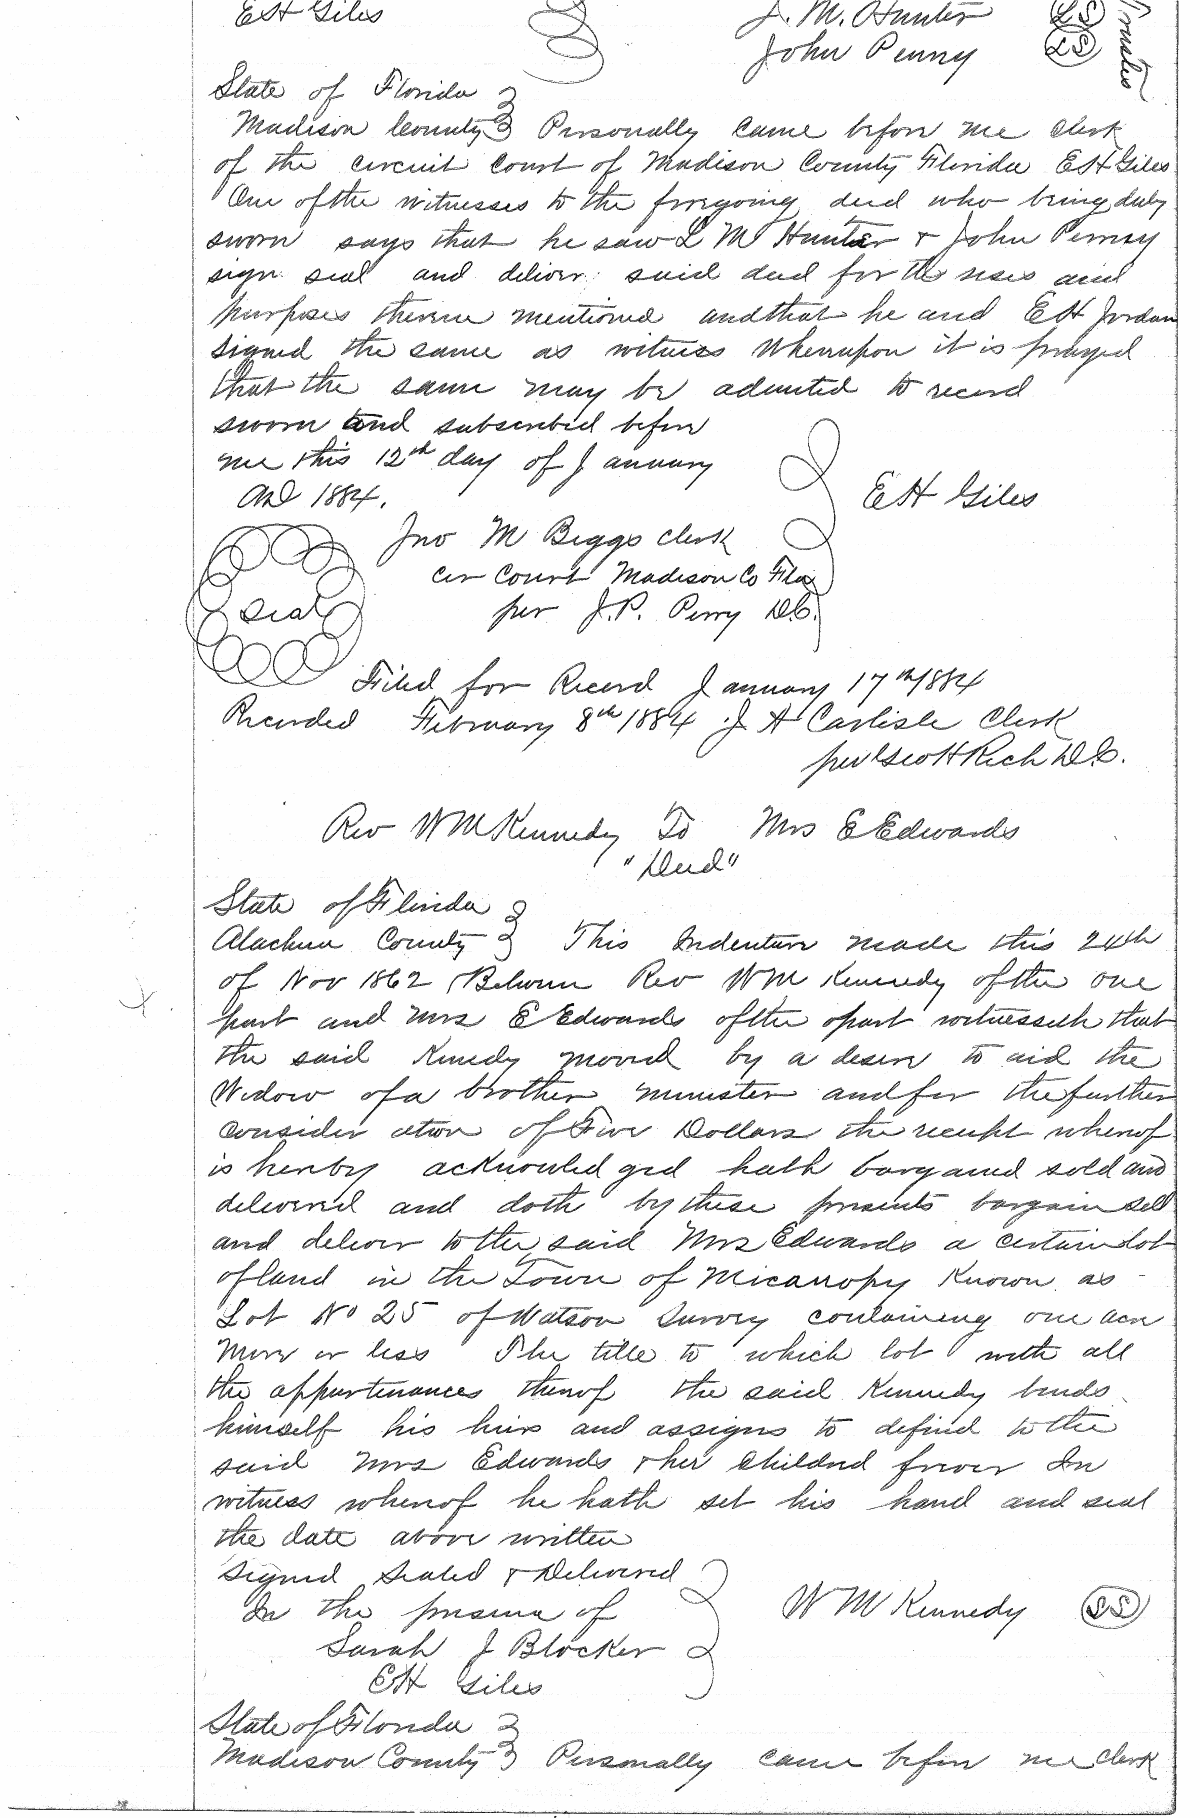 EH Giles J. M. Hunter LS
John Penny LS Trustees
State of Florida
Madison County Personally came before me clerk
of the circuit court of Madison County Florida EH Giles
One of the witnesses to the foregoing deed who being duly
sworn says that he saw L M Hunter & John Penny
sign seal and deliver said deed for the uses and
purposes therein mentioned and that he and EH Jordan
signed the same as witness Whereupon it is prayed
that the same may be admitted to record
sworn and subscribed before
me this 12th day of January
AD 1884. EH Giles
Jno M Beggs clerk
cir court Madison Co Fla
seal per J.P. Perry D.C.
Filed for Record January 17th 1884
Recorded February 8th 1884 J A Carlisle Clerk
per Geo H Rich D.C.
Rev WM Kennedy To Mrs E Edwards
"Deed"
State of Florida
Alachua County This Indenture made this 24th
of Nov 1862 Between Rev WM Kennedy of the one
part and Mrs E Edwards of the opart witnesseth that
the said Kenedy moved by a desire to aid the
Widow of a brother minister and for the further
consider ation of Five Dollars the receipt whereof
is hereby acknowled ged hath bargained sold and
delivered and doth by these presents bargain sell
and deliver to the said Mrs Edwards a certain lot
of land in the Town of Micanopy Known as
Lot No 25 of Watson Survey containing one acre
More or less The title to which lot with all
the appurtenances thereof the said Kennedy binds
himself his heirs and assigns to defend to the
said Mrs Edwards & her Childred forever In
witness whereof he hath set his hand and seal
the date above written
Signed Sealed & Delivered
In the presence of WM Kennedy SS
Sarah J Blocker
EH Giles
State of Florida
Madison County Personally came before me clerk